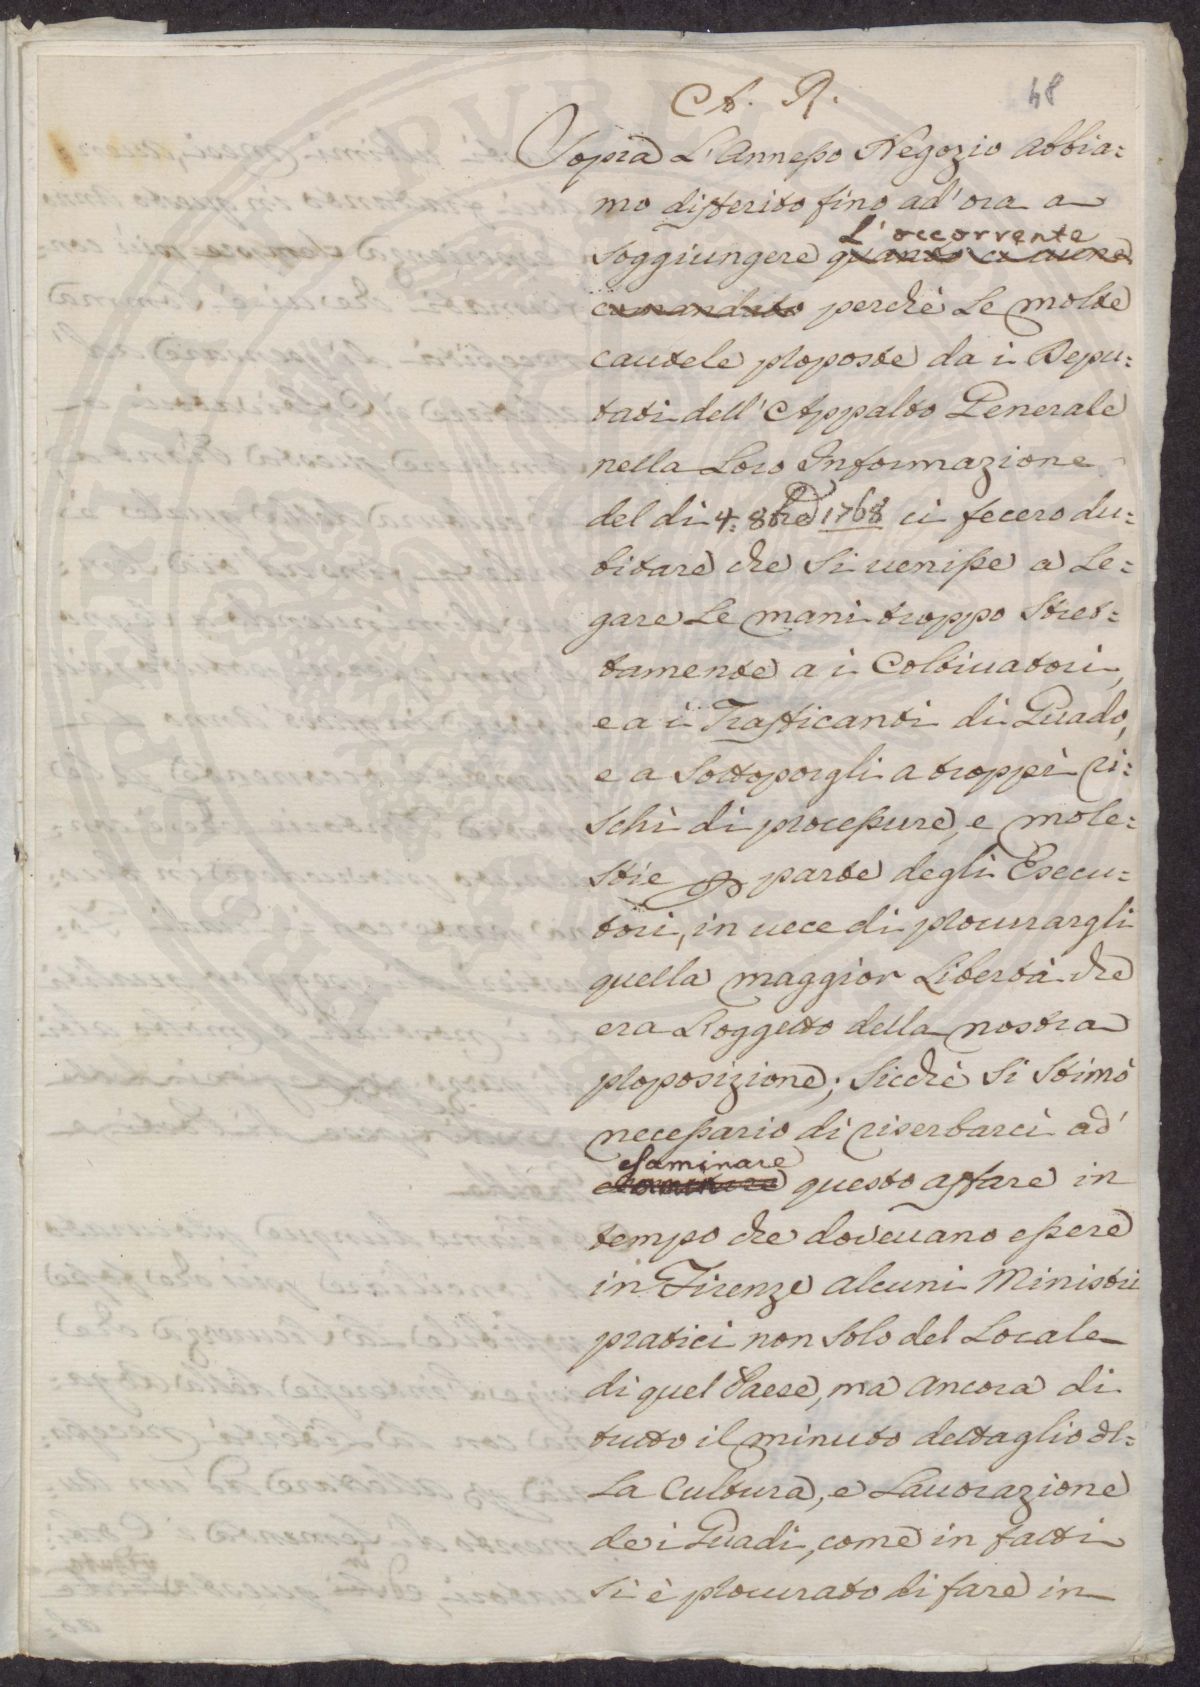 A. R.
68
Sopra L'Annesso Negozio abbia=
mo differito fino ad'ora a
L'occorrente
soggiungere quanto ci aveva
comandato perchè Le molte
cautele proposte da i Depu=
tati dell'Appalto Generale
nella Loro Informazione
del di 4: 8bre 1768 ci fecero du=
bitare che si venisse a Le=
gare Le mani troppo stret=
tamente a i Coltivatori,
e a i Trafficanti di Guado,
e a sottoporgli a troppi ri=
schi di processure, e mole=
stie per parte degli Esecu=
tori, in vece di procurargli
quella maggior Libertà che
era L'oggetto della nostra
proposizione; sicchè si stimò
necessario di riserbarci ad'
esaminare
questo affare in
tempo che dovevano essere
in Firenze alcuni Ministri
pratici non solo del Locale
di quel Paese, ma ancora di
tutto il minuto dettaglio del=
La Cultura, e Lavorazione
de i Guadi, come in fatti
si è procurato di fare in